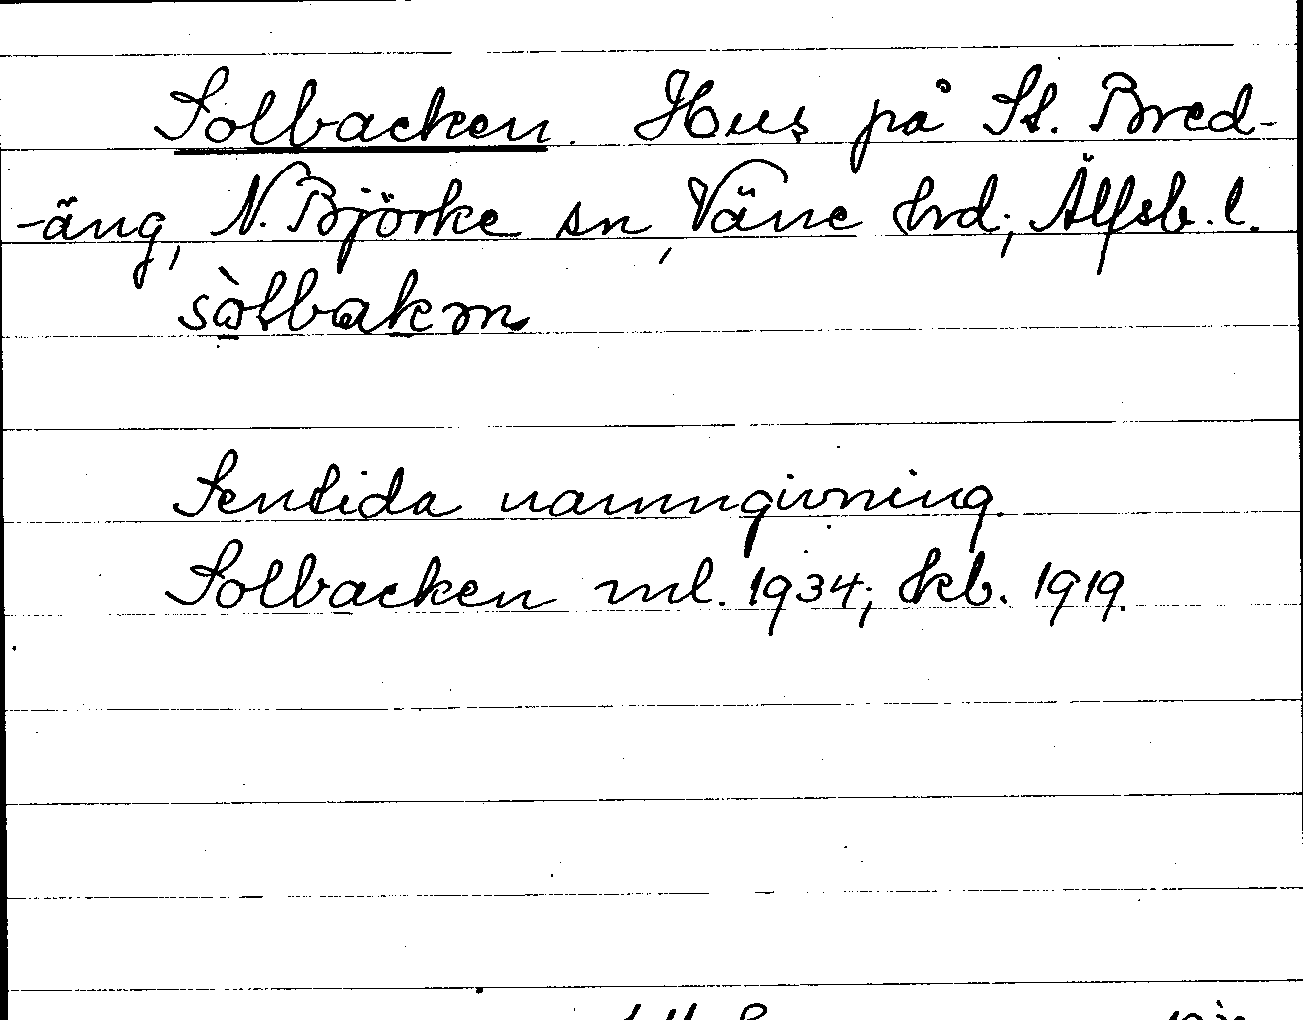 Solbacken. Hus på St. Bred-
-äng, N. Björke sn, Väne hrd; Älfsb. l.
sòlbakən
Sentida namngivning.
Solbacken ml. 1934; hkb. 1919.